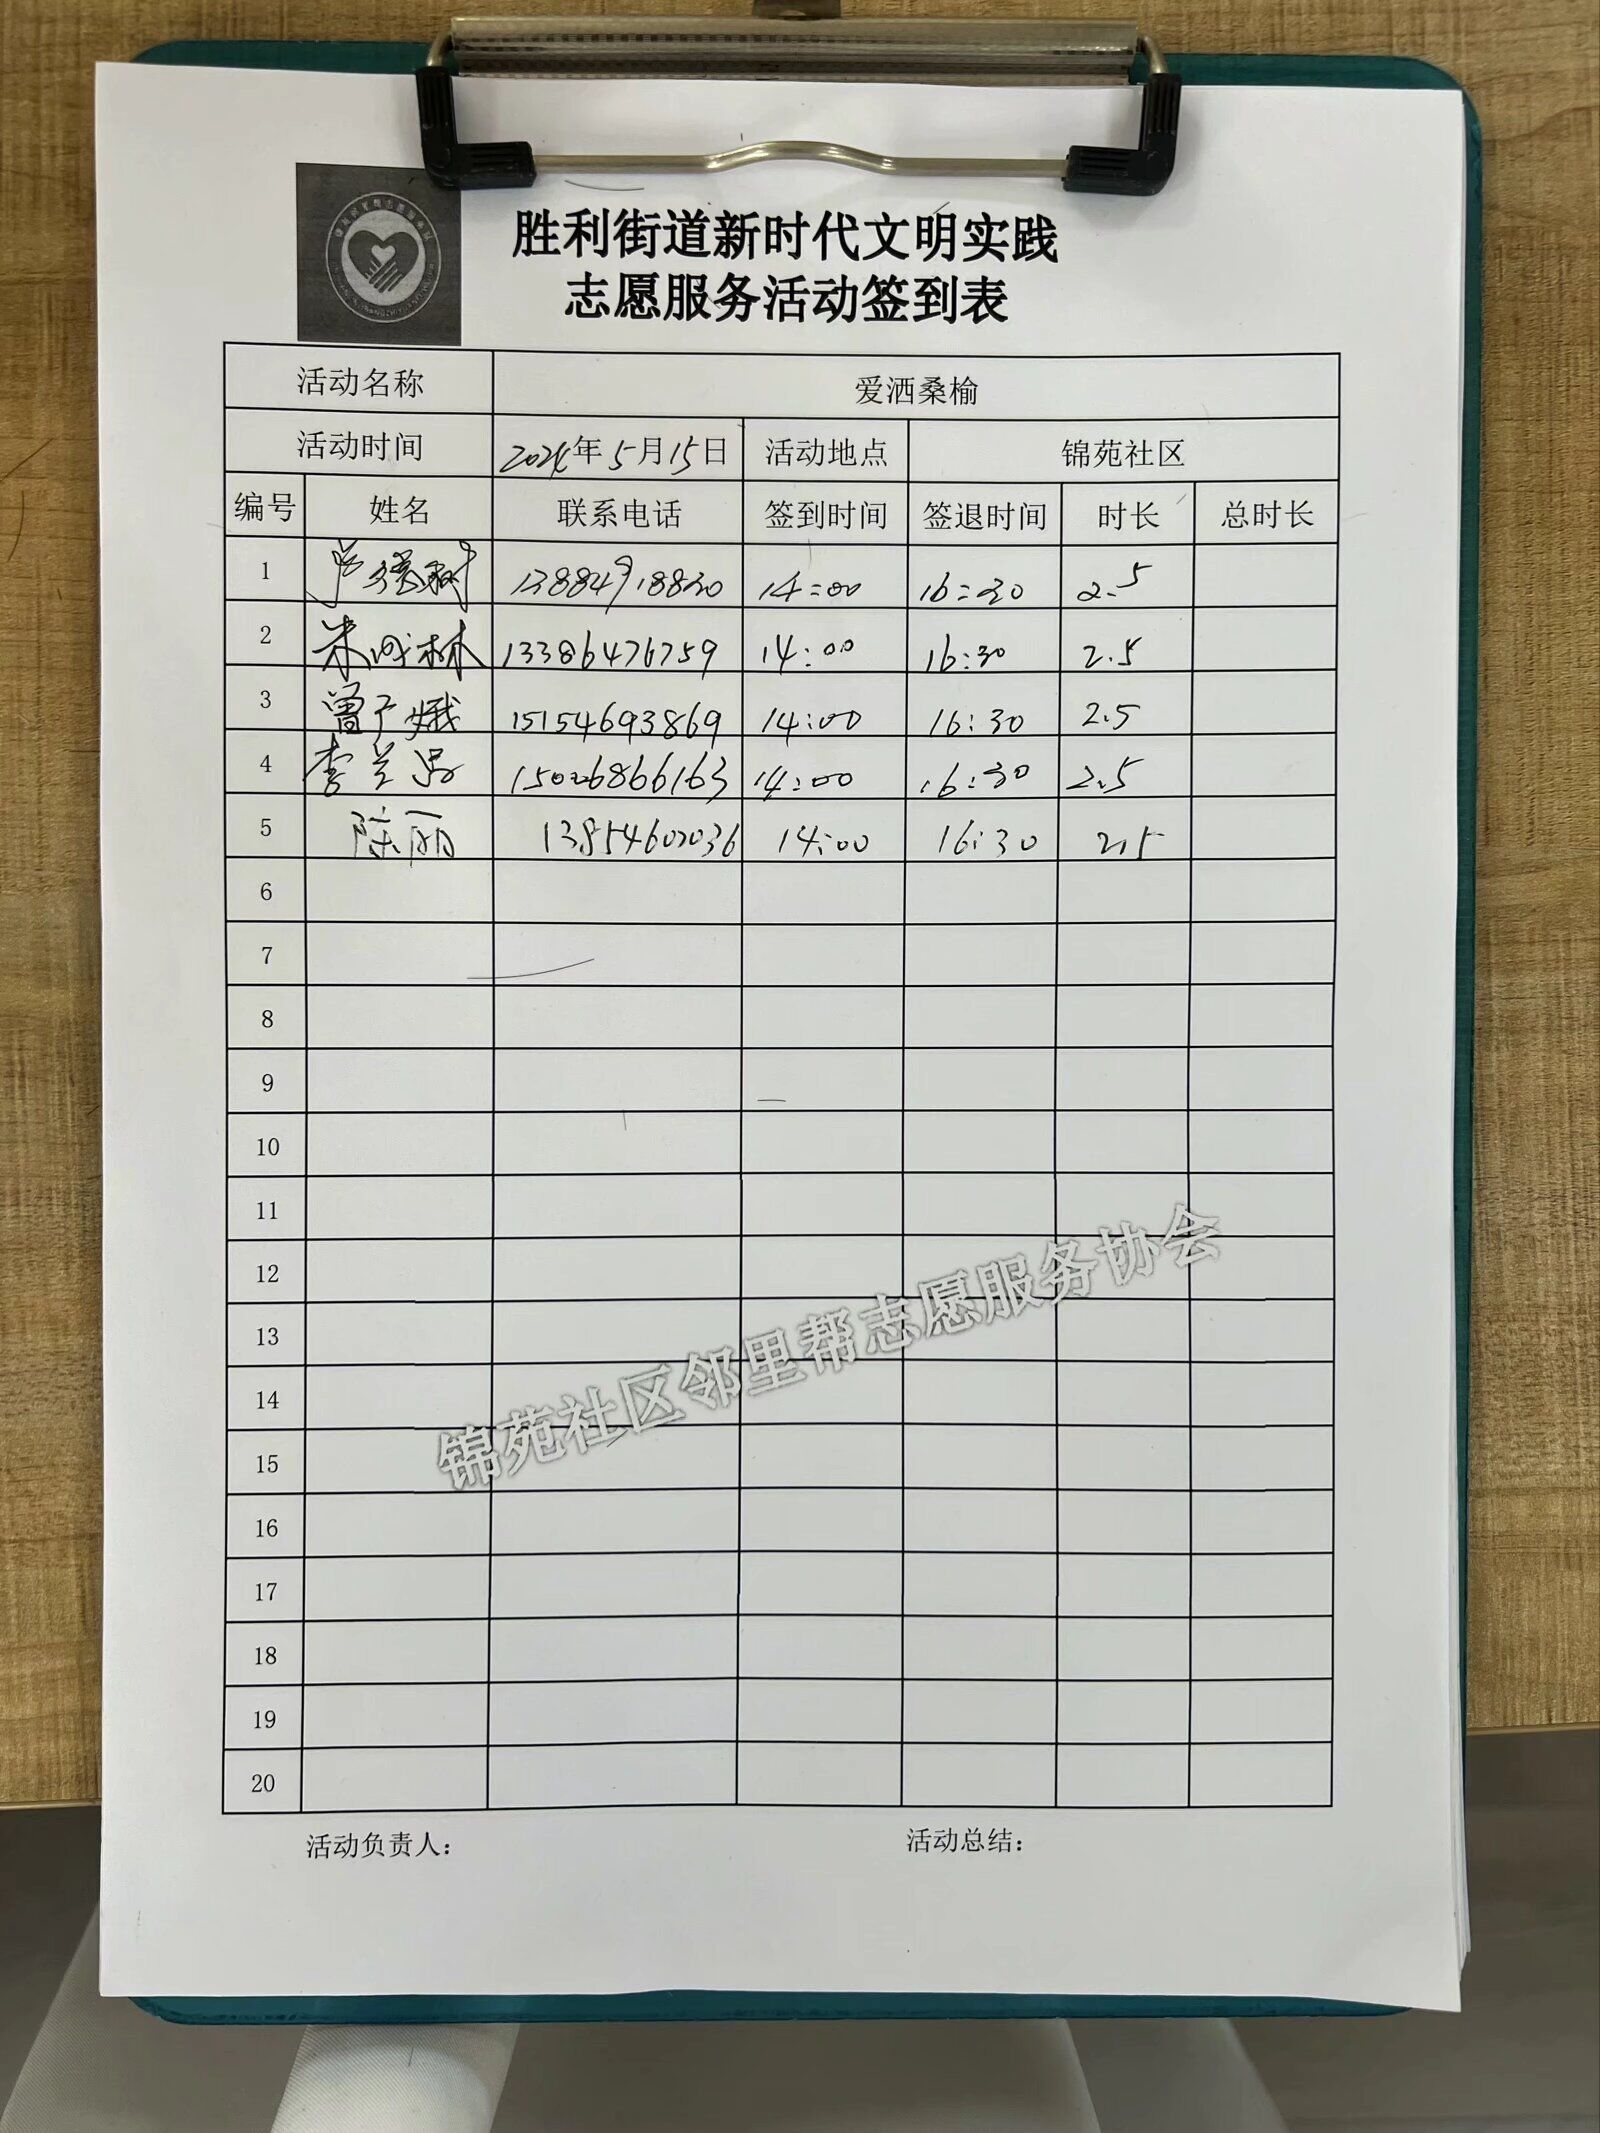 胜利街道新时代文明实践
志愿服务活动签到表
活动名称 爱洒桑榆
活动时间 2024年5月15日 活动地点 锦苑社区
编号 姓名 联系电话 签到时间 签退时间 时长 总时长
1 13884918830 14:00 16:30 2.5
2 13386476759 14:00 16:30 2.5
3 曾广娥 15154693869 14:00 16:30 2.5
4 李兰 15026866163 14:00 16:30 2.5
5 陈丽 14:00 16:30 2.5
6
7
8
9
10
11
12
13
14
15
16
17
18
19
20
锦苑社区邻里帮志愿服务协会
活动负责人: 活动总结: